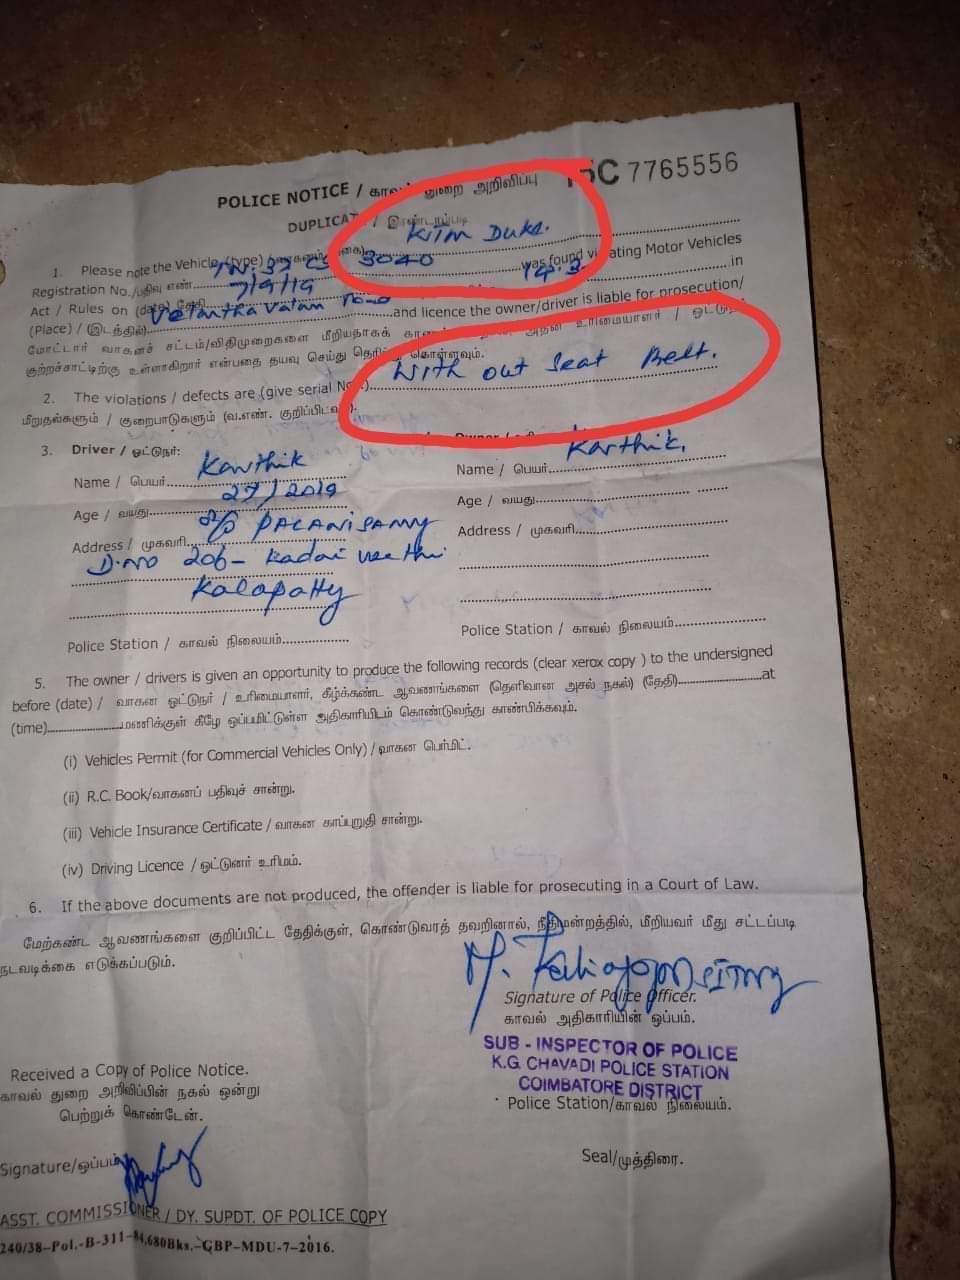 POLICE NOTICE / காவல் துறை அறிவிப்பு
15C 7765556
DUPLICATE / இரண்டாம்படி
1. Please note the Vehicle (type) Ktm Duke.
Registration No./பதிவு எண். TN. 37 3040 was found violating Motor Vehicles
Act / Rules on (date) தேதி 7/9/19 in
(Place) / (இடத்தில்) and licence the owner/driver is liable for prosecution/
மோட்டார் வாகனச் சட்டம்/விதிமுறைகளை மீறியதாகக் உரிமையாளர் / ஓட்டுநர்
குற்றச்சாட்டிற்கு உள்ளாகிறார் என்பதை தயவு செய்து கொள்ளவும்.
2. The violations / defects are (give serial No.) With out Seat Belt.
மீறுதல்களும் / குறைபாடுகளும் (வ.எண். குறிப்பிடவும்).
3. Driver / ஓட்டுநர்:
Name / பெயர் Karthik
Name / பெயர் Karthik.
Age / வயது 27/2019
Age / வயது
Address / முகவரி S/o PALANISAMY
Address / முகவரி
D.NO 206- Kadai veethi
Kalapatty
Police Station / காவல் நிலையம்
Police Station / காவல் நிலையம்
5. The owner / drivers is given an opportunity to produce the following records (clear xerox copy ) to the undersigned
before (date) / வாகன ஓட்டுநர் / உரிமையாளர், கீழ்க்கண்ட ஆவணங்களை (தெளிவான அசல் நகல்) (தேதி) at
(time) மணிக்குள் கீழே ஒப்பமிட்டுள்ள அதிகாரியிடம் கொண்டுவந்து காண்பிக்கவும்.
(i) Vehicles Permit (for Commercial Vehicles Only) / வாகன பெர்மிட்.
(ii) R.C. Book/வாகனப் பதிவுச் சான்று.
(iii) Vehicle Insurance Certificate / வாகன காப்புறுதி சான்று.
(iv) Driving Licence / ஓட்டுனர் உரிமம்.
6. If the above documents are not produced, the offender is liable for prosecuting in a Court of Law.
மேற்கண்ட ஆவணங்களை குறிப்பிட்ட தேதிக்குள், கொண்டுவரத் தவறினால், நீதிமன்றத்தில், மீறியவர் மீது சட்டப்படி
நடவடிக்கை எடுக்கப்படும்.
Signature of Police Officer.
காவல் அதிகாரியின் ஒப்பம்.
SUB - INSPECTOR OF POLICE
K.G. CHAVADI POLICE STATION
COIMBATORE DISTRICT
Police Station/காவல் நிலையம்.
Received a Copy of Police Notice.
காவல் துறை அறிவிப்பின் நகல் ஒன்று
பெற்றுக் கொண்டேன்.
Signature/ஒப்பம்
Seal/முத்திரை.
ASST. COMMISSIONER / DY. SUPDT. OF POLICE COPY
240/38-Pol.-B-311-84,680Bks.-GBP-MDU-7-2016.